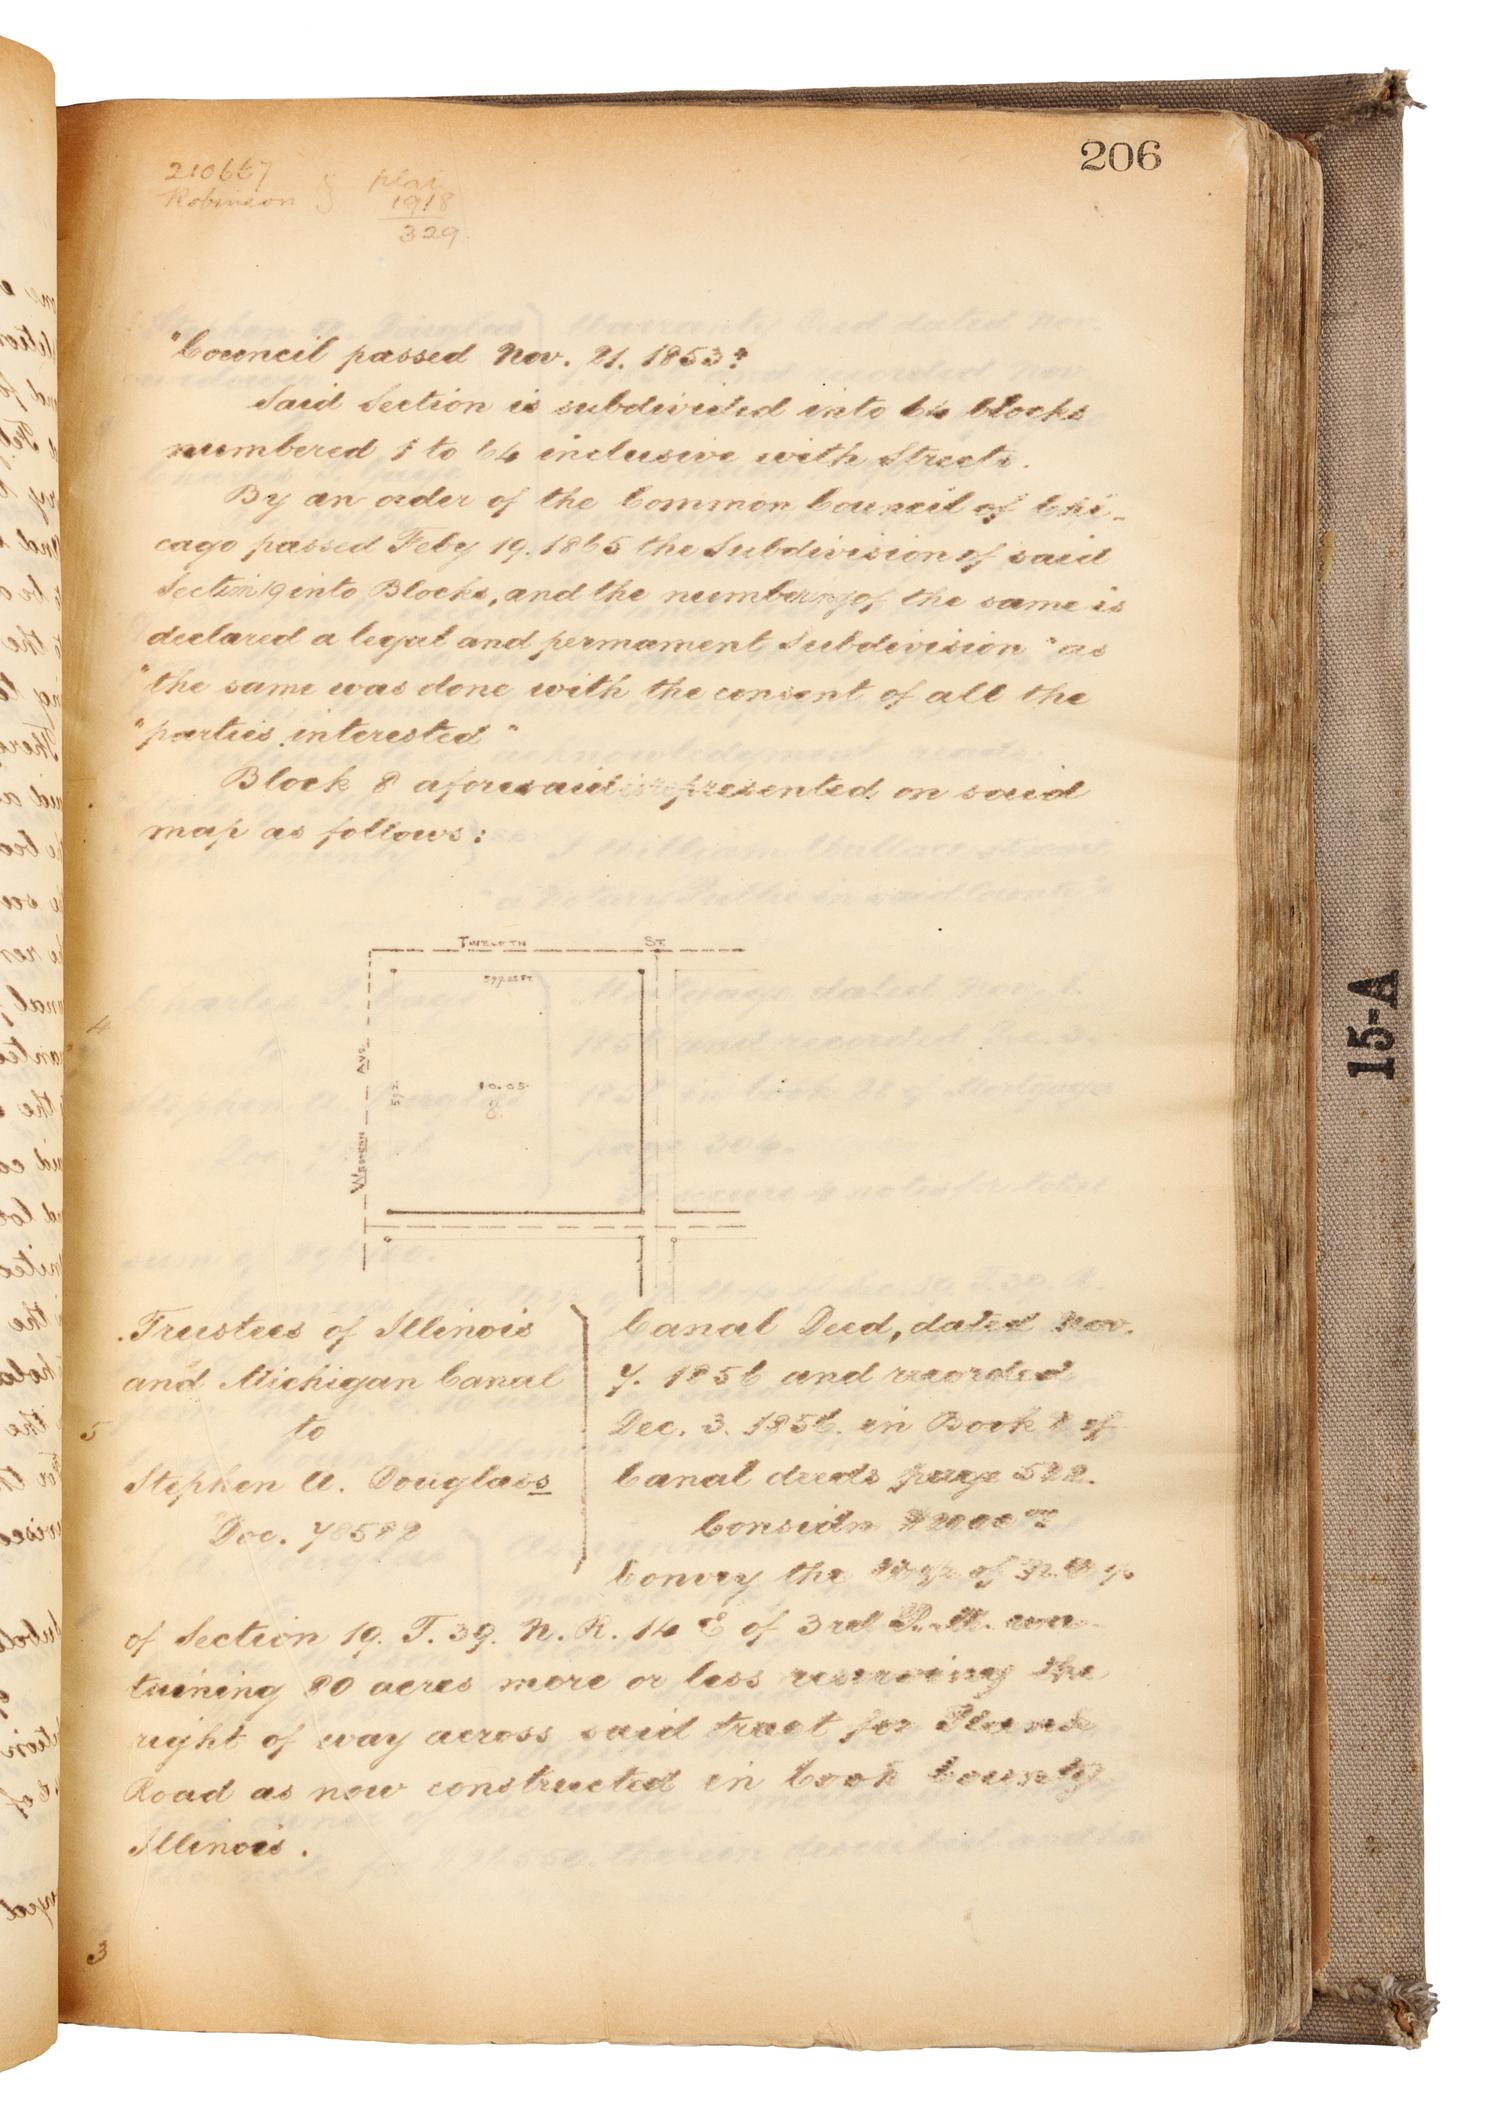 206
210667
Robinson } plat
1918
329
"Council passed Nov. 21. 1853"
Said Section is subdivided into 64 blocks
numbered 1 to 64 inclusive with Streets.
By an order of the Common Council of Chi-
cago passed Feby 19. 1865 the Subdivision of said
Section 19 into Blocks, and the numbering of the same is
declared a legal and permament Subdivision "as
"the same was done with the consent of all the
"parties interested"
Block 8 aforesaid is represented on said
map as follows:
Twelfth St.
597.25 Ft.
Western Ave.
597.
10.05.
8.
4
Trustees of Illinois
and Michigan Canal
to
5
Stephen A. Douglass
Doc. 78582
Canal Deed, dated Nov.
7. 1856 and recorded
Dec. 3. 1856. in Book 8 of
Canal deeds page 522.
Considn $2000
Convey the of
of Section 19. T. 39. N. R. 14 E of 3rd P. M. con-
taining 80 acres more or less reserving the
right of way across said tract for Plank
Road as now constructed in Cook County
Illinois.
3
15-A